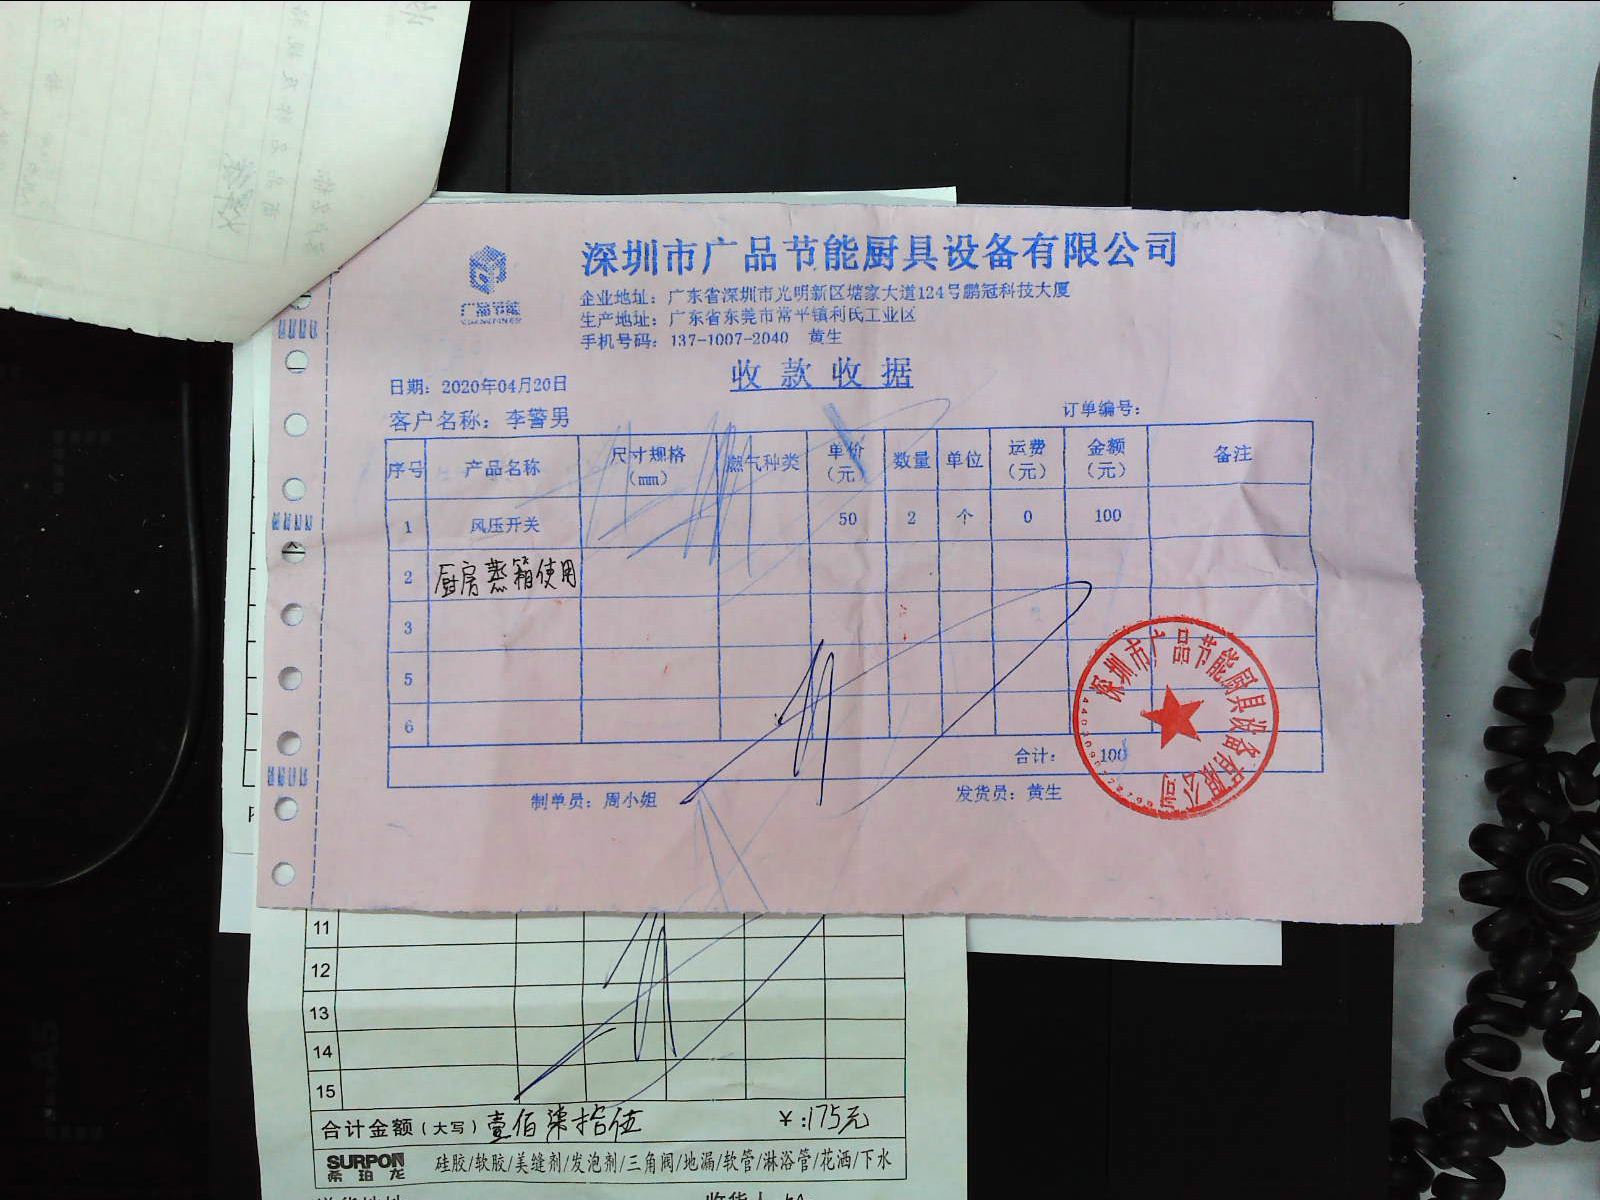 深圳市广品节能厨具设备有限公司
广品节能
企业地址：广东省深圳市光明新区塘家大道124号鹏冠科技大厦
生产地址：广东省东莞市常平镇利氏工业区
手机号码：137-1007-2040 黄生
收款收据
日期：2020年04月20日
客户名称：李警男
订单编号：
序号 产品名称 尺寸规格（mm） 燃气种类 单价（元） 数量 单位 运费（元） 金额（元） 备注
1 风压开关 50 2 个 0 100
2 厨房蒸箱使用
3
5
6
合计： 100
制单员：周小姐 发货员：黄生
深圳市广品节能厨具设备有限公司
11
12
13
14
15
合计金额（大写）壹佰柒拾伍 ￥:175元
SURPON
希珀龙
硅胶/软胶/美缝剂/发泡剂/三角阀/地漏/软管/淋浴管/花洒/下水